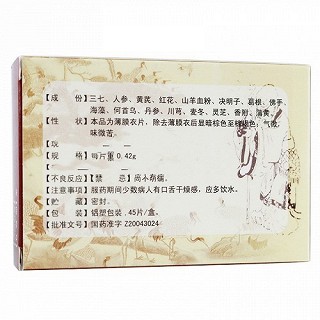 【成 份】三七、人参、黄芪、红花、山羊血粉、决明子、葛根、佛手
海藻、何首乌、丹参、川芎、麦冬、灵芝、香附、蒲黄、
【性 状】本品为薄膜衣片，除去薄膜衣后显暗棕色至棕褐色；气微，
味微苦。
【规 格】每片重 0.42g
【不良反应】【禁 忌】尚不明确。
【注意事项】服药期间少数病人有口舌干燥感，应多饮水。
【贮 藏】密封.
【包 装】铝塑包装．45片/盒。
【批准文号】国药准字 Z20043024